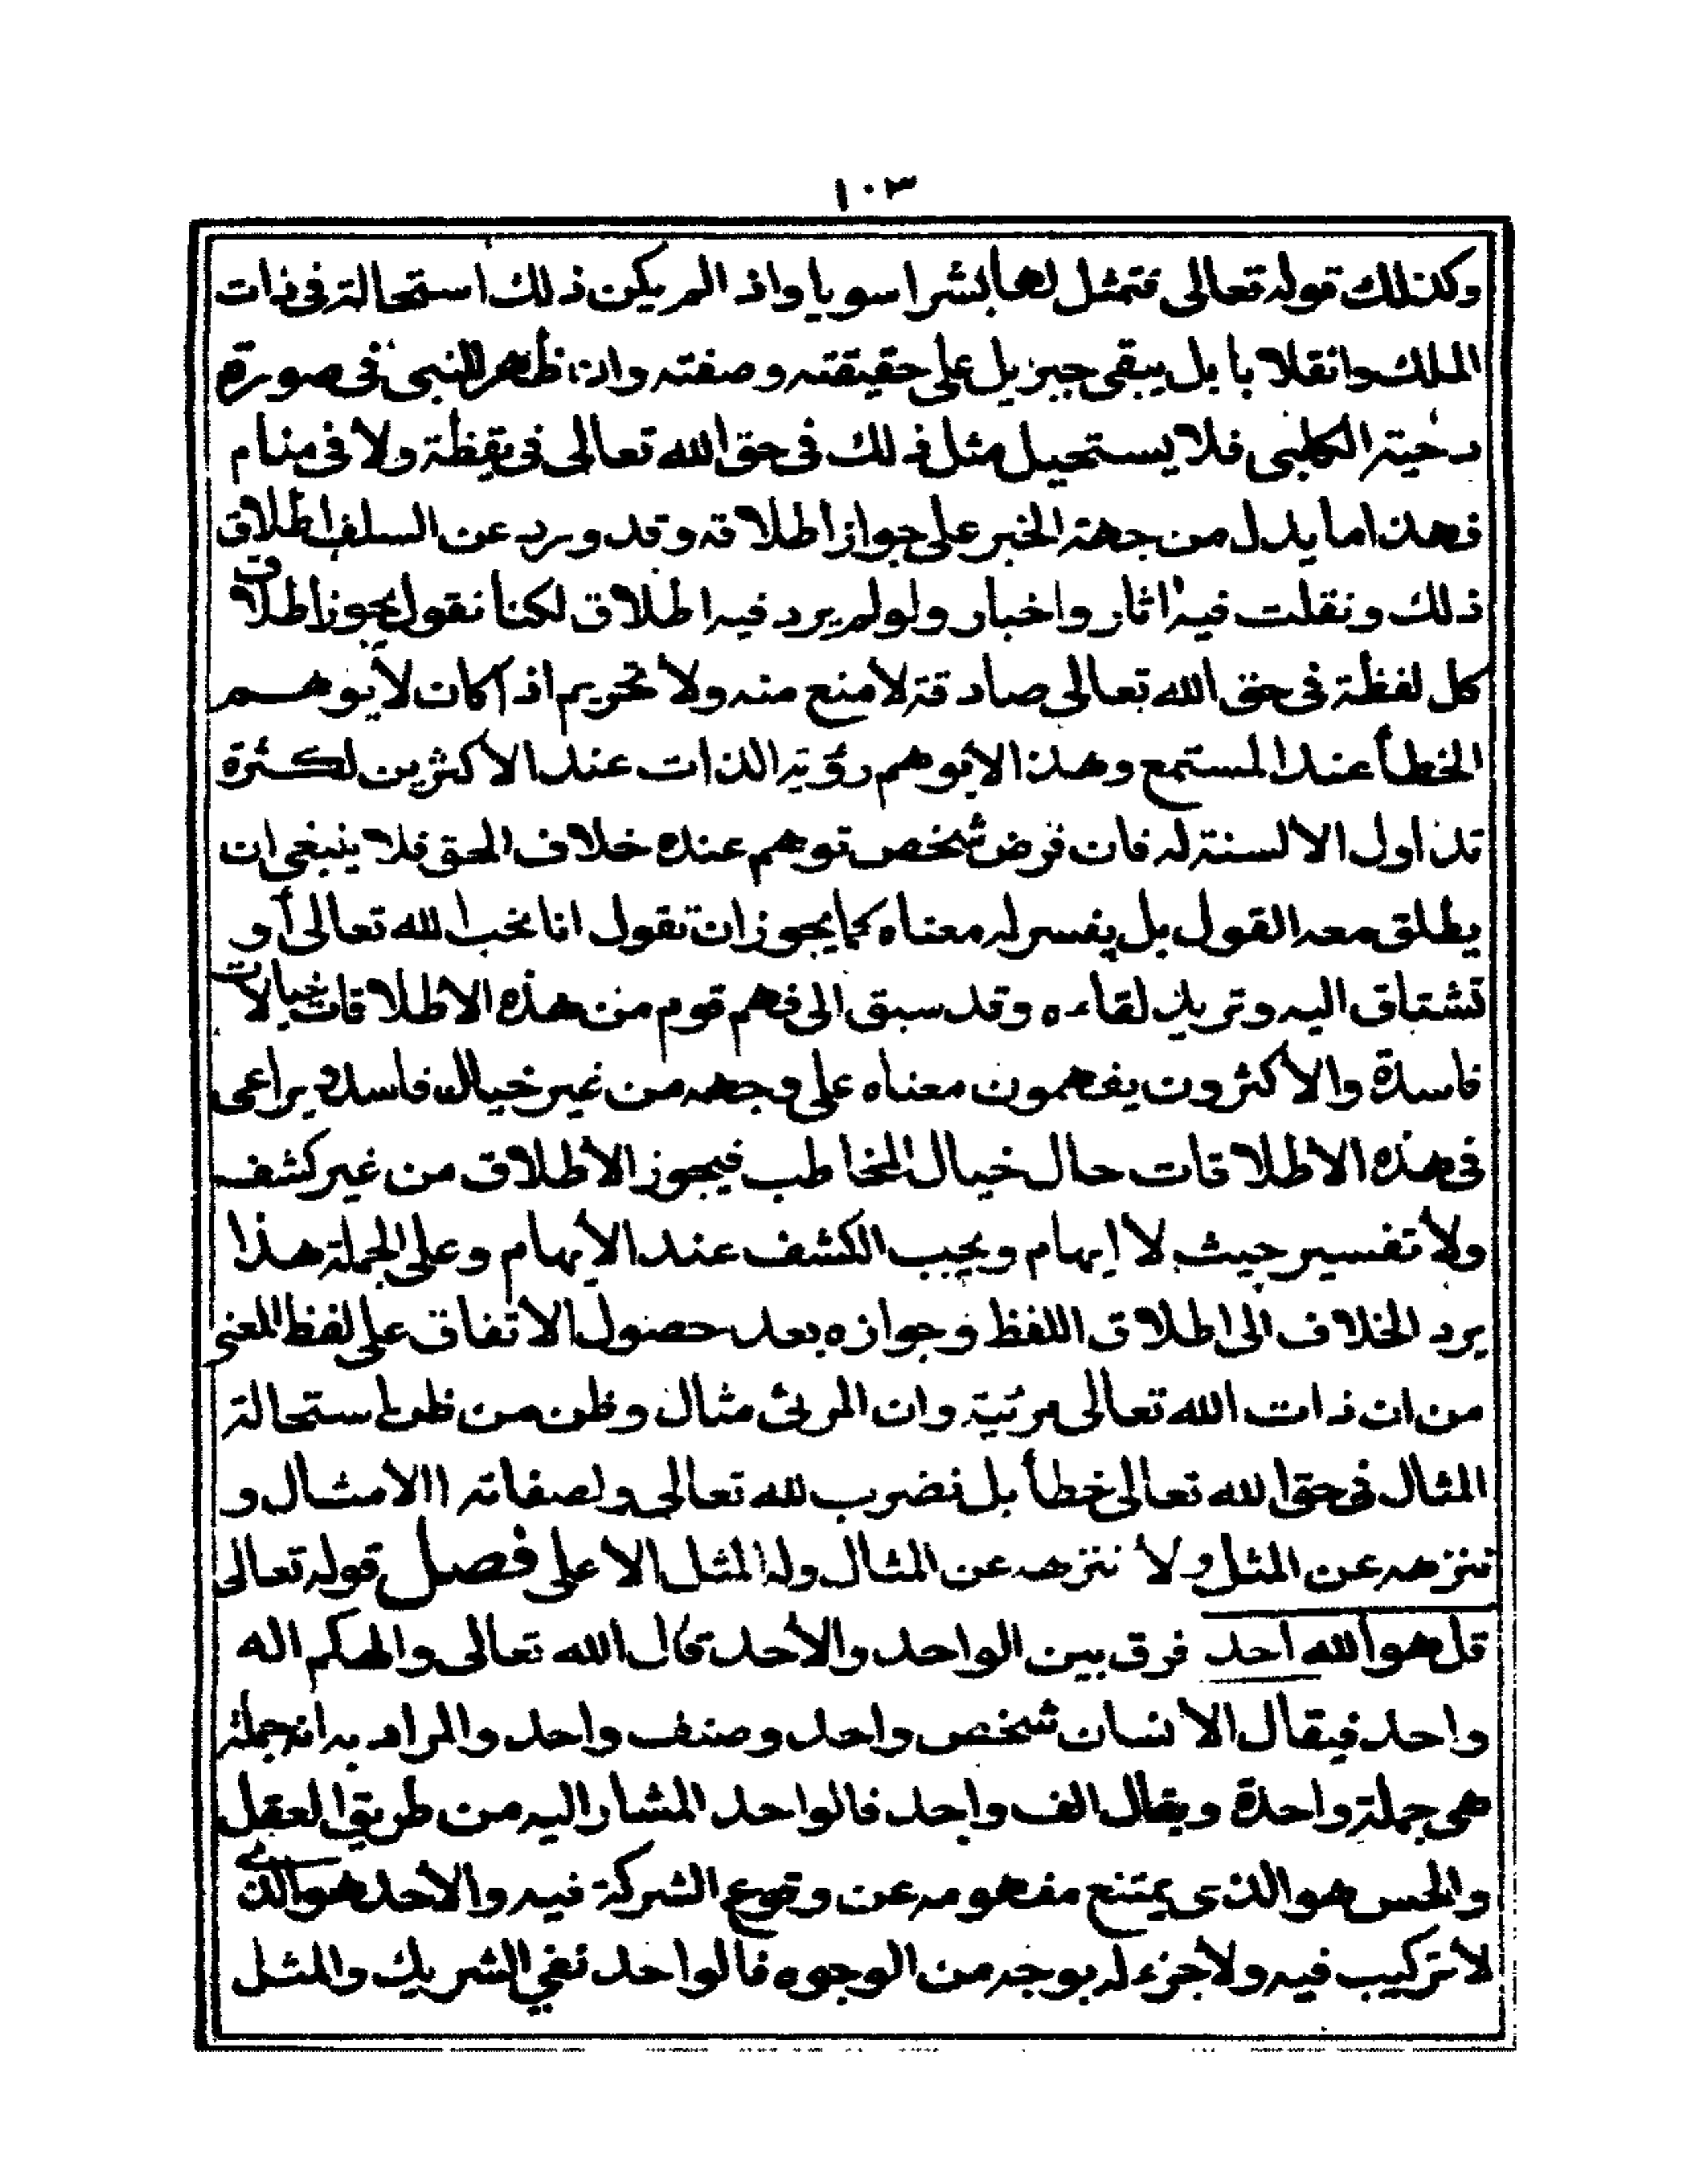 ١٠٣
وكذلك قوله تعالى فتمثل لها بشرا سويا واذ الم يكن ذلك استحالة في ذات
الملك وانقلابا بل يبقى جبريل على حقيقته وصفته وان ظهر للنبي في صورة
دحية الكلبي فلا يستحيل مثل ذلك في حق الله تعالى في يقظة ولا في منام
فهذا ما يدل من جهة الخبر على جواز اطلاقه وقد ورد عن السلف اطلاق
ذلك ونقلت فيه اثار واخبار ولولم يرد فيه اطلاق لكنا نقول يجوز اطلاق
كل لفظة في حق الله تعالى صادقة لا منع منه ولا تحريم اذا كان لا يوهم
الخطأ عند المستمع وهذا لا يوهم رؤية الذات عند الاكثرين لكثرة
تداول الالسنة له فان فرض شخص توهم عنده خلاف الحق فلا ينبغي ان
يطلق معه القول بل يفسر له معناه كما يجوز ان نقول انا نحب الله تعالى أو
نشتاق اليه ونريد لقاءه وقد سبق الى فهم قوم من هذه الاطلاقات خيالات
فاسدة والاكثرون يفهمون معناه على وجهه من غير خيال فاسد ويراعى
في هذه الاطلاقات حال خيال المخاطب فيجوز الاطلاق من غير كشف
ولا تفسير حيث لا ايهام ويجب الكشف عند الايهام وعلى الجملة هذا
يرد الخلاف الى اطلاق اللفظ وجوازه بعد حصول الاتفاق على لفظ المعنى
من ان ذات الله تعالى مرئية وان المرئى مثال وظن من ظن استحالة
المثال في حق الله تعالى خطأ بل نضرب لله تعالى ولصفاته االامثال و
ننزهه عن المثل ولا ننزهه عن المثال وله المثل الاعلى فصل قوله تعالى
قل هو الله احد فرق بين الواحد والأحد قال الله تعالى والهكم اله
واحد فيقال الانسان شخص واحد وصنف واحد والمراد به انه جملة
هى جملة واحدة ويقال الف واحد فالواحد المشار اليه من طريق العقل
والحس هو الذى يمتنع مفهومه عن وقوع الشركة فيه والأحد هو الذي
لا تركيب فيه ولا جزء له بوجه من الوجوه فالواحد نفي الشريك والمثل